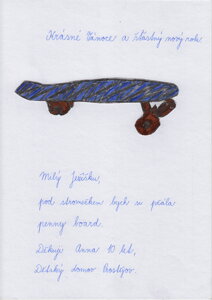 Krásné Vánoce a šťastný nový rok
Milý Ježíšku,
pod stromečkem bych si přála
penny board.
Děkuji Anna 10 let,
Dětský domov Prostějov.